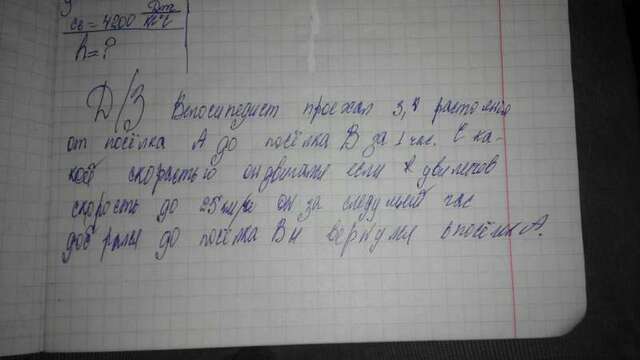 св = 4200 Дж/кг°С
h = ?
Д/З Велосипедист проехал 3,4 растояния
от посёлка А до посёлка В за 1 час. С ка-
кой скорастью он двигался если увеличев
скорость до 25 км/ч он за следующей час
до посёлка В и вернулся в посёлк А.